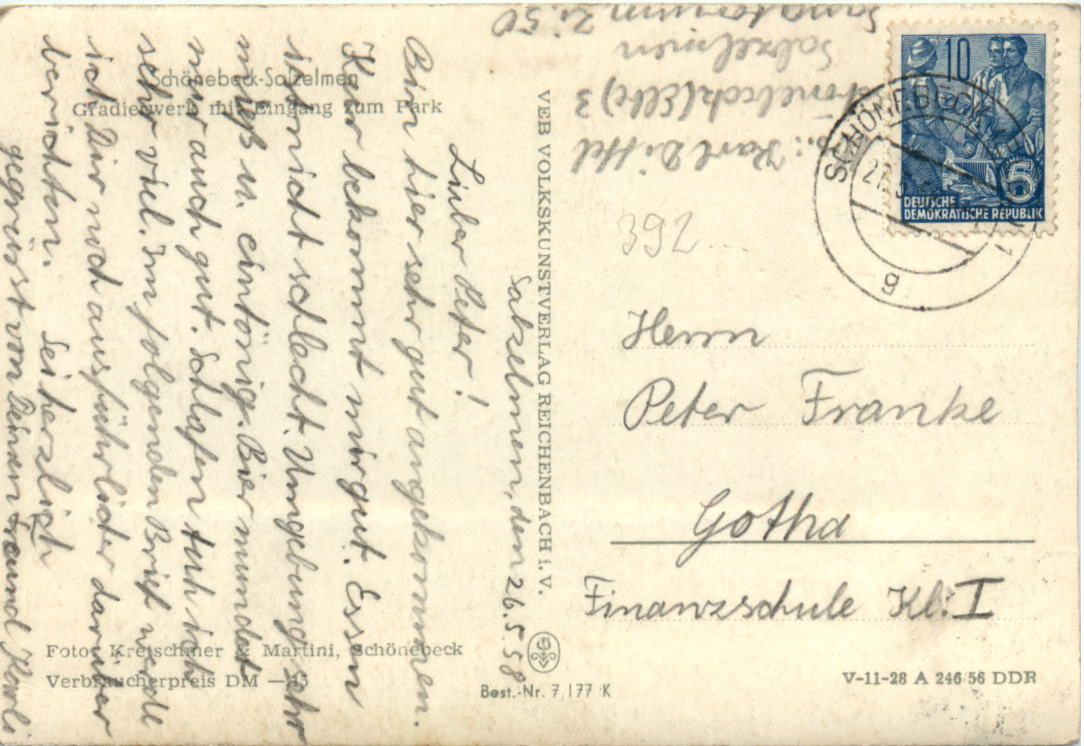 Schönebeck-Salzelmen
Gradierwerk mit Eingang zum Park
Salzelmen, den 26.5.58
Lieber Peter!
Bin hier sehr gut angekommen.
Kur bekommt mir gut. Essen
ist nicht schlecht. Umgebung sehr
mies u. eintönig. Bier mundet
mir auch gut. Schlafen tuh ich
sehr viel. Im folgenden Brief werde
ich Dir noch ausführlicher darüber
berichten. Sei herzlich
gegrüsst von Deinem Freund Karli
Foto: Kretschmer & Martini, Schönebeck
Verbraucherpreis DM —,15
VEB VOLKSKUNSTVERLAG REICHENBACH i. V.
Best.-Nr. 7/177 K
Karl Dittel
Schönebeck (Elbe) 3
Salzelmen
Sanatorium Zi. 50
10
5
DEUTSCHE
DEMOKRATISCHE REPUBLIK
SCHÖNEBECK
g
392
Herrn
Peter Franke
Gotha
Finanzschule Kl. I
V-11-28 A 246 56 DDR